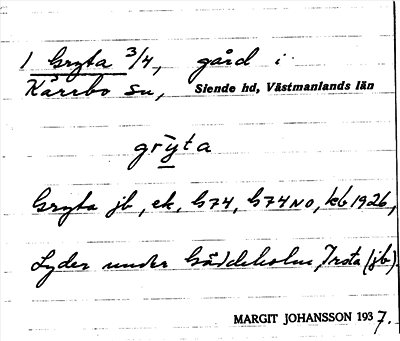 1 Gryta 3/4, gård i
Kärrbo sn, Siende hd, Västmanlands län
grỳta
Gryta jb, ek, G74, G74NO, kb 1926,
Lyder under Gäddeholm, Irsta (jb).
MARGIT JOHANSSON 1937.